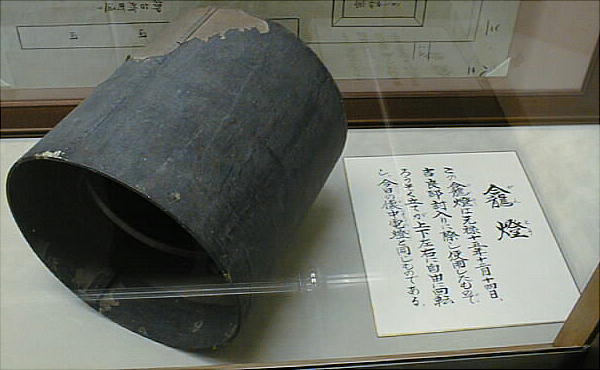 龕燈
この龕燈は元禄十五年十二月十四日、
吉良邸討入りに際し使用したもので、
ろうそく立てが上下左右に自由に回転
し、今日の懐中電燈と同じものである。